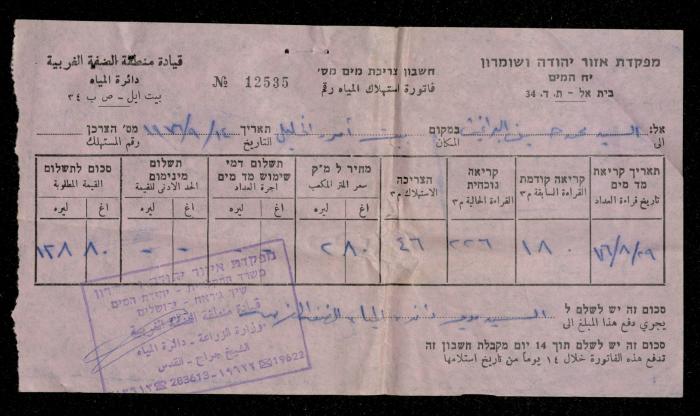 מפקדת אזור יהודה ושומרון
יח המים
בית אל - ת. ד. 34
חשבון צריכת מים מס'
فاتورة استهلاك المياه رقم
№ 12535
قيادة منطقة الضفة الغربية
دائرة المياه
بيت ايل - ص ب ٣٤
אל: السيد محمود במקום بيت أمر، الخليل תאריך ١٩٧٦/٩/١٤ מס' הצרכן
الى المكان التاريخ رقم المستهلك
תאריך קריאת מד מים קריאה קודמת קריאה נוכחית הצריכה מחיר ל מ"ק תשלום דמי שימוש מד מים תשלום מינימום סכום לתשלום
تاريخ قراءة العداد القراءة السابقة م٣ القراءة الحالية م٣ الاستهلاك م٣ سعر المتر المكعب اجرة العداد الحد الادنى للقيمة القيمة المطلوبة
اغ ليره اغ ليره اغ ليره اغ ليره
٧٦/٨/٢٩ ١٨٠ ٢٢٦ ٤٦ ٨٠ ٢ - - - - ٨٠ ١٢٨
סכום זה יש לשלם ל السيد مدير دائرة المياه الضفة الغربية
يجري دفع هذا المبلغ الى
סכום זה יש לשלם תוך 14 יום מקבלת חשבון זה
تدفع هذه الفاتورة خلال ١٤ يوماً من تاريخ استلامها
מפקדת איזור יהודה ושומרון
משרד החקלאות - יחידת המים
שיך ג'ראח - ירושלים
قيادة منطقة الضفة الغربية
وزارة الزراعة - دائرة المياه
الشيخ جراح - القدس
283613 - ١٩٦٢٢ ☎ 19622